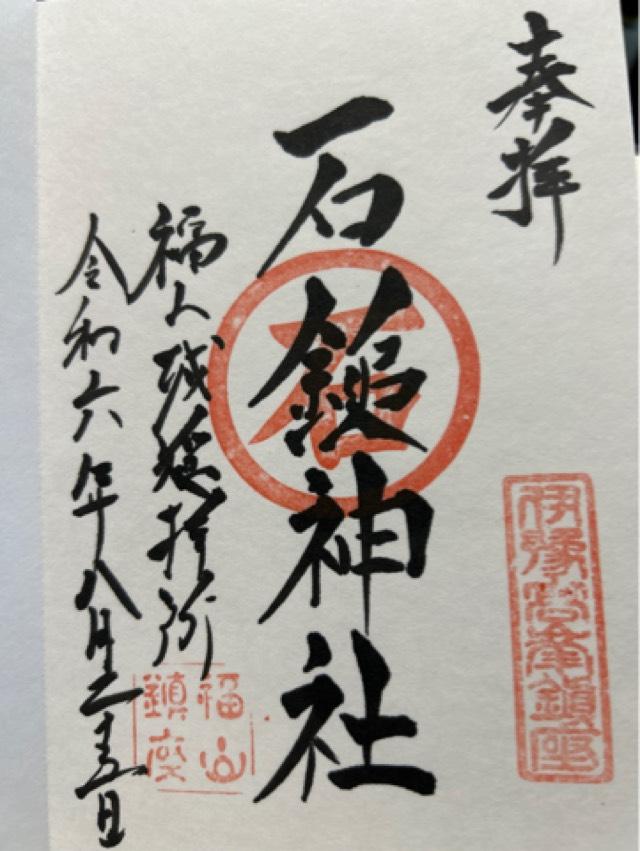 奉拝
伊豫峯鎮座
石鎚神社
石
福山城遙拝所
福山
鎮座
令和六年八月二十五日